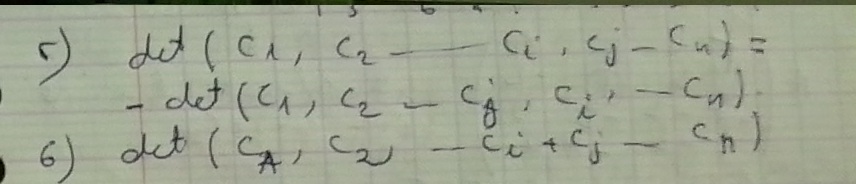 5) det ( C1, C2 — Ci, Cj — Cn) =
- det (C1, C2 — Cj, Ci, — Cn).
6) det ( C1, C2, — Ci + Cj — Cn)